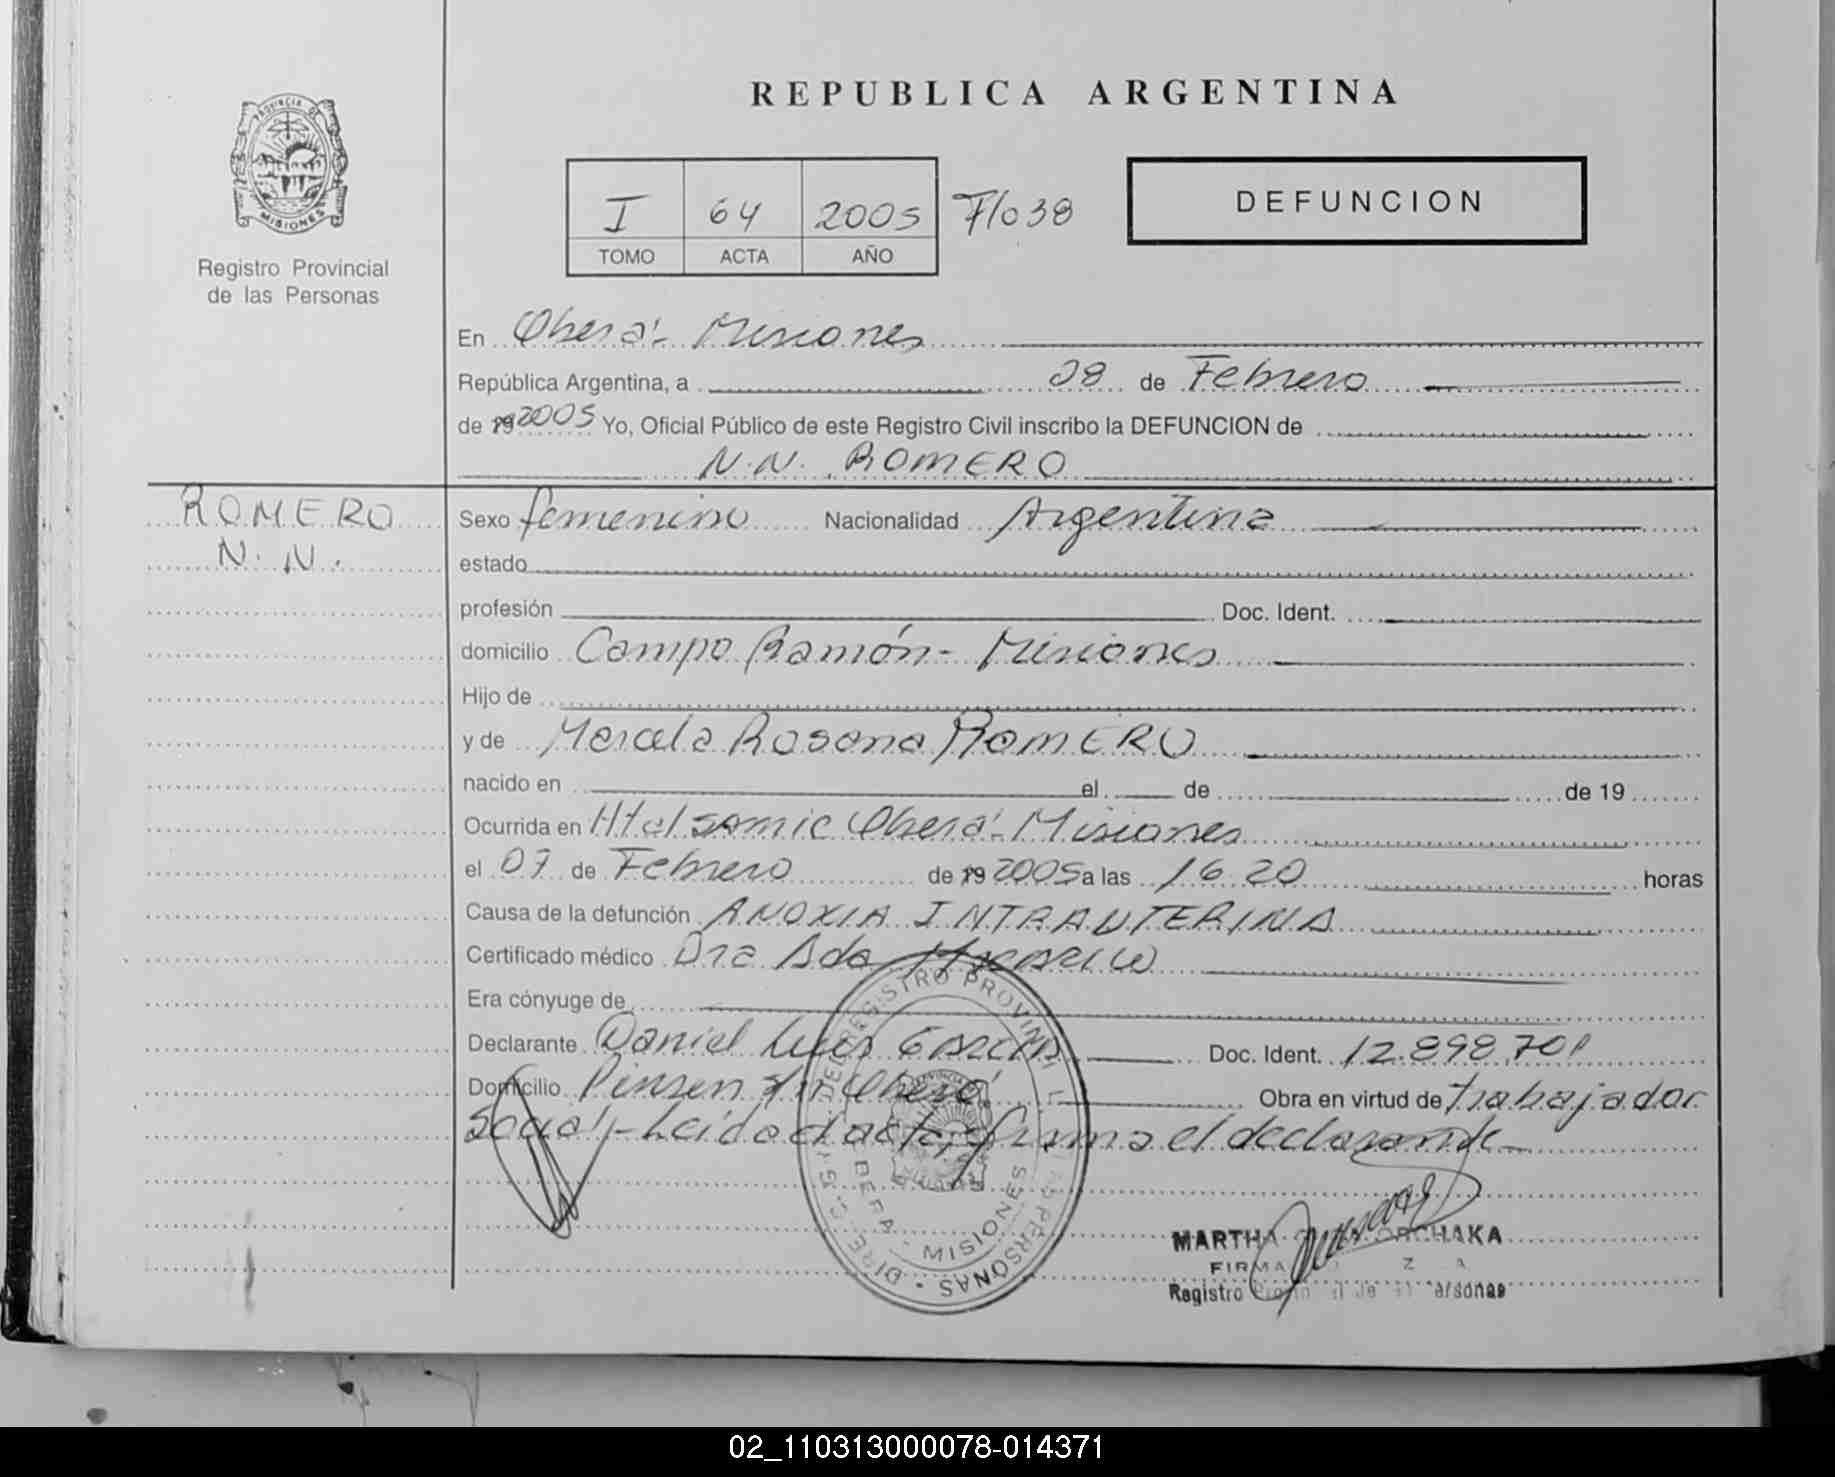 REPUBLICA ARGENTINA
PROVINCIA DE
MISIONES
Registro Provincial
de las Personas
I 64 2005 F/038
TOMO ACTA AÑO
DEFUNCION
En Oberá - Misiones
República Argentina, a 28 de Febrero
de 19 2005 Yo, Oficial Público de este Registro Civil inscribo la DEFUNCION de
N.N. ROMERO
ROMERO
N.N.
Sexo femenino Nacionalidad Argentina
estado
profesión Doc. Ident.
domicilio Campo Ramón - Misiones
Hijo de
y de Marcela Rosana ROMERO
nacido en el de de 19
Ocurrida en Htal samic Oberá - Misiones
el 07 de Febrero de 19 2005 a las 16 20 horas
Causa de la defunción ANOXIA INTRAUTERINA
Certificado médico Dra Ada
Era cónyuge de
Declarante Daniel Luis Garcia Doc. Ident. 12.898.701
Domicilio s/n Oberá Obra en virtud de trabajador
Social - Leída el acta, firma el declarante
REGISTRO PROVINCIAL DE LAS PERSONAS
OBERA - MISIONES
MARTHA
FIRMA
Registro Personas
02_110313000078-014371